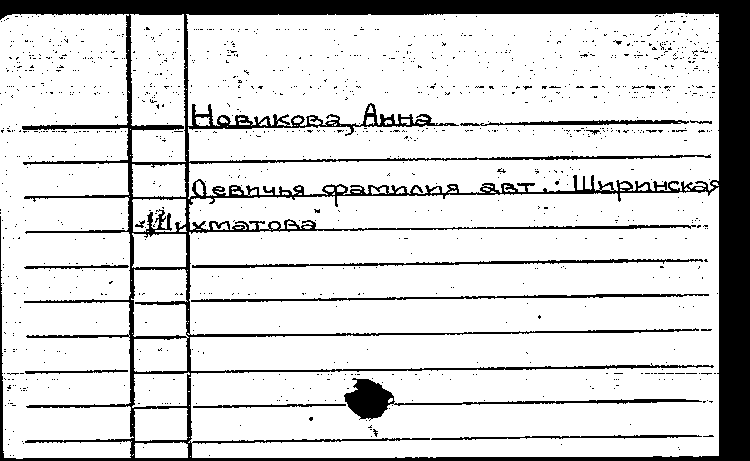 Новикова, Анна
Девичья фамилия авт.: Ширинская
-Шихматова